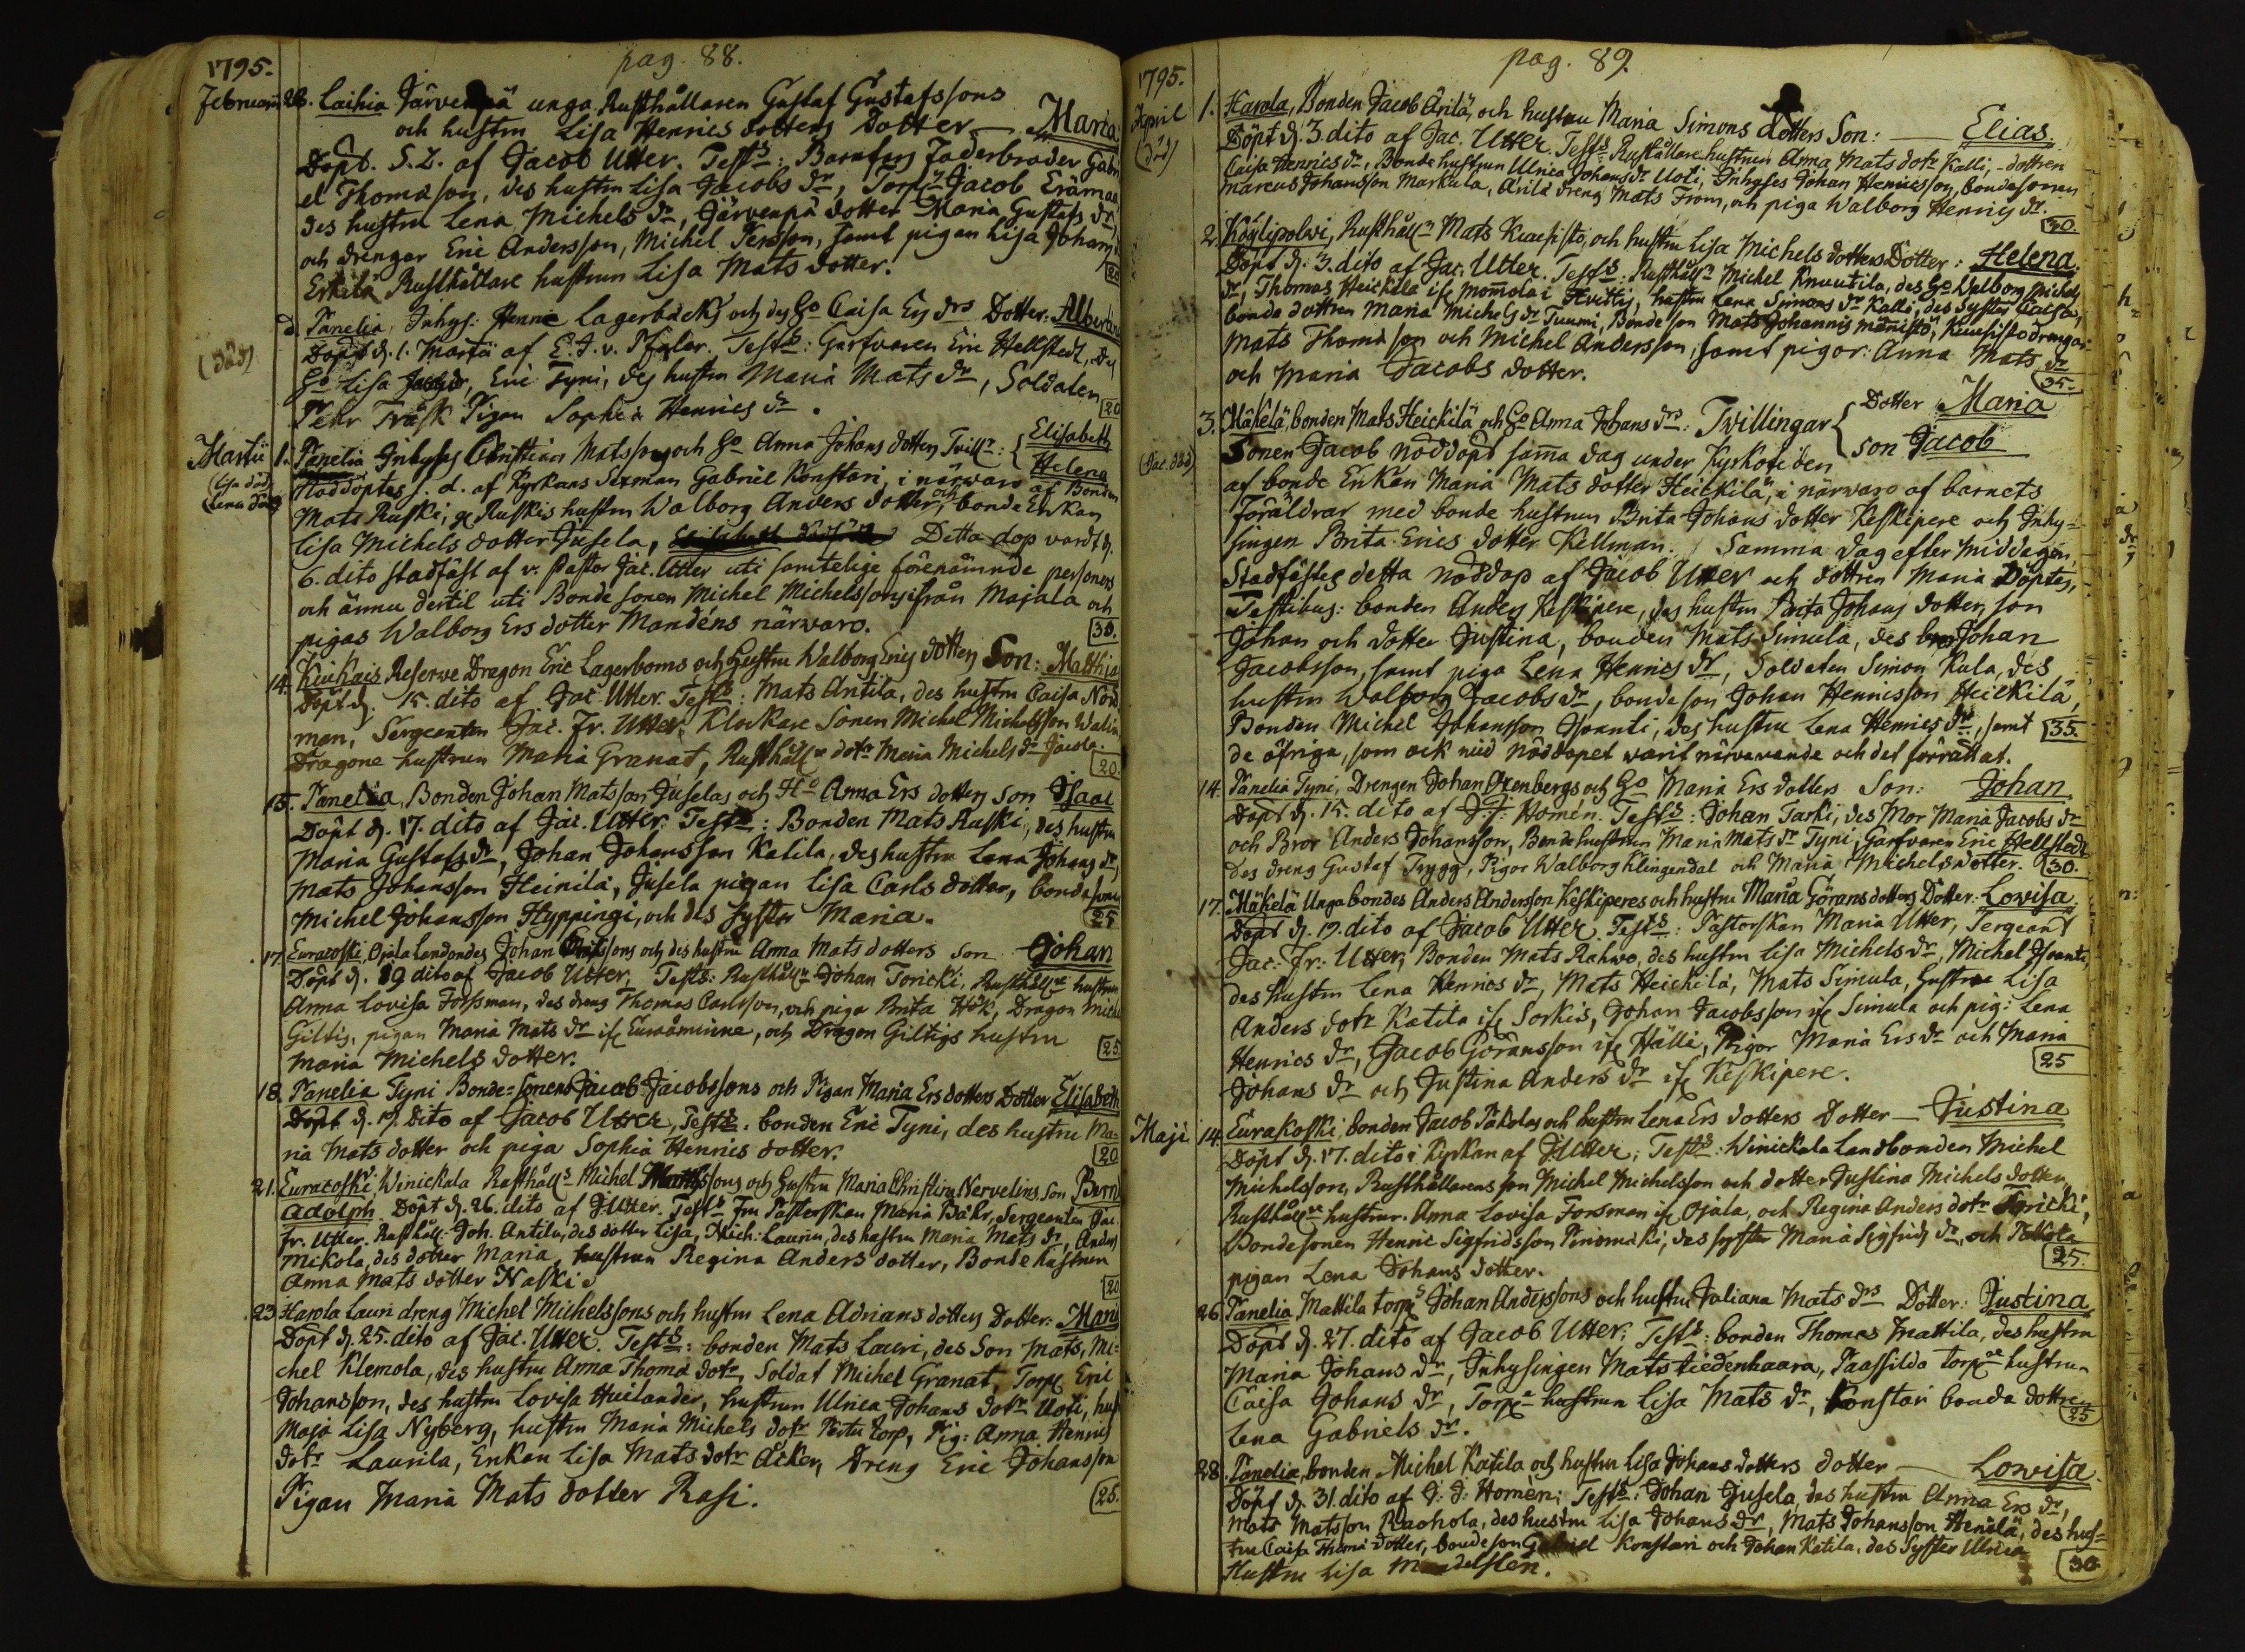 pag. 88.
1795.
Februarii 28. Laihia Järvenpä unga Rusthållaren Gustaf Gustafssons
och hustru Lisa Henrics dotters Dotter — Maria
Döpt. S. D. af Jacob Utter. Tests: Barnfars Faderbroder Gabri
el Thomasson, des hustru Lisa Jacobs dr, Torpr Jacob Erämaa
des hustru Lena Michels dr, Järvenpä dotter Maria Gustafs dr
och drengar Eric Andersson, Michel Persson, samt pigan Lisa Johans
Eskilä Rusthållare hustrun Lisa Mats dotter. 20
d. Panelia, Inhys: Henric Lagerbäcks och des Ho Caisa Ers drs Dotter: Albertina
(död) Döpt d. 1. Martii af E. J. v. Pfaler. Tests: Garfvaren Eric Hellstedt, des
Ho Lisa Jacobs dr, Eric Tyni, des hustru Maria Mats dr, Soldaten
Pehr Träsk Pigan Sophia Henrics dr. 20
Martii 1. Panelia Inhyses Christian Matssons och Ho Anna Johans dotters Tvillr: { Elisabeth
Helena
(Lisa död) Nöddöptes s. d. af Kyrkans Sexman Gabriel Konstari, i närvaro af Bonden
(Lena död) Mats Ruski, Ruskis hustru Walborg Anders dotter, och bonde Enkan
Lisa Michels dotter Jusela, Detta dop vardt d.
6. dito stadfäst af v. Pastor Jac. Utter uti samtelige förenämnde personers
och ännu dertil uti Bonde sonen Michel Michelssons ifrån Majala och
pigas Walborg Ers dotter Mandéns närvaro. 30.
14. Kiukais Reserve Dragon Eric Lagerboms och hustru Walborg Erics dotters Son: Matthias
Döpt d. 15. dito af Jac Utter. Tests: Mats Antila, des hustru Caisa Nord
man, Sergeanten Jac. Fr. Utter, Klockare Sonen Michel Michelsson Walin
Dragone hustrun Maria Granat, Rusthålle dotr Maria Michels dr Jacola. 20.
15. Panelia, Bonden Johan Matsson Juselas och Ho Anna Ers dotters son Isaac
Döpt d. 17. dito af Jac. Utter. Tests: Bonden Mats Ruski, des hustru
Maria Gustafs dr, Johan Johansson Katila, des hustru Lena Johans dr
Mats Johansson Heinilä, Jusela pigan Lisa Carls dotter, bondesonen
Michel Johansson Hyppingi, och des syster Maria. 25
17. Euracoski, Ojala Landbondes Johan Matssons och des hustru Anna Mats dotters son Johan
Döpt d. 19 dito af Jacob Utter, Tests: Rusthållr Johan Toricki, Rusthålle hustrun
Anna Lovisa Forssman, des dreng Thomas Carlsson, och piga Brita Hök, Dragon Michel
Giltig, pigan Maria Mats dr if Euraminne, och Dragon Giltigs hustru
Maria Michels dotter. 25
18. Panelia Tyni Bonde-sonens Jacob Jacobssons och Pigan Maria Ers dotters Dotter Elisabeth
Döpt d. 19. Dito af Jacob Utter, Tests: bonden Eric Tyni, des hustru Ma-
ria Mats dotter och piga Sophia Henrics dotter. 20
21. Euracoski, Winickala Rusthålls Michel Matssons och hustru Maria Christina Nervelins Son Bern
Adolph Döpt d. 26. dito af J Utter. Tests Fru Pastorskan Maria Bähr, Sergeanten Jac.
Fr. Utter, Rusthåll: Joh. Antila, des dotter Lisa, Mich: Lauren, des hustru Maria Mats dr, Anders
Mikola, des dotter Maria, hustrun Regina Anders dotter, Bonde hustrun
Anna Mats dotter Naski 20
23 Harola Lauri dreng Michel Michelssons och hustru Lena Adrians dotters Dotter: Maria
Döpt d. 25. dito af Jac. Utter. Tests: bonden Mats Lauri, des Son Mats, Mi-
chel Klemola, des hustru Anna Thoma dotr, Soldat Michel Granat, Torp: Eric
Johansson, des hustru Lovisa Huilander, hustrun Ulrica Johans dotr Uoti, hus
Maja Lisa Nyberg, hustru Maria Michels dotr Torp, Pig: Anna Henrics
dotr Laurila, Enkan Lisa Mats dotr Äcker, Dreng Eric Johansson
Pigan Maria Mats dotter Rasi. 25.
pag. 89.
1795.
April 1. Harola, Bonden Jacob Ärilä, och hustru Maria Simons dotters Son: — Elias.
(död) Döpt d. 3. dito af Jac. Utter. Tests Rusthållare hustrun Anna Mats dotr Kalli, - dottren
Caisa Henrics dr, Bonde hustrun Ulrica Johans dr Uoti, Inhyses Johan Henricsson, bondesonen
Marcus Johansson Markula, Ärilä dreng Mats From, och piga Walborg Henrics dr. 30.
2. Köylipolwi, Rusthållr Mats Kuusisto, och hustru Lisa Michels dotters Dotter: Helena.
Döpt d. 3. dito af Jac. Utter. Tests: Rusthållr Michel Knuutila, des Ho Walborg Michels
dr, Thomas Heickilä if Mommola i Hvittis, hustru Lena Simons dr Kalli, des syster Caisa,
bonde dottren Maria Michels dr Tuumi, Bonde son Mats Johannis Männistö, Kuusisto drengar:
Mats Thomasson och Michel Andersson, samt pigor: Anna Mats dr
och Maria Jacobs dotter. 35.
3. Mäkelä, bonden Mats Heickilä och Ho Anna Johans drs: Tvillingar { Dotter Maria
son Jacob
(Jac. död) Sonen Jacob nöddöpt samma dag under Kyrkotiden
af bonde Enkan Maria Mats dotter Heickilä, i närvaro af barnets
Föräldrar med bonde hustrun Brita Johans dotter Keskipere och Inhy-
singen Brita Erics dotter Killman. Samma dag efter middagen
Stadfästes detta nöddop af Jacob Utter och dottren Maria Döptes,
Testibus: bonden Anders Keskipere, des hustru Brita Johans dotter, son
Johan och dotter Justina, bonden Mats Simula, des bror Johan
Jacobsson, samt piga Lena Henrics dr, Soldaten Simon Kula, des
hustru Walborg Jacobs dr, bonde son Johan Hennisson Heickilä,
Bonden Michel Johansson Isvanti, des hustru Lena Henrics dr, samt 35.
de öfriga, som ock vid nöddopet warit närvarande och det förrättat.
14. Panelia Tyni, Drengen Johan Oxenbergs och Ho Maria Ers dotters Son: Johan
Döpt d. 15. dito af J. J: Homén. Tests: Johan Tarki, des Mor Maria Jacobs dr
och Bror Anders Johansson, Bonde hustrun Maria Mats dr Tyni, Garfvaren Eric Hellstedt
Des dreng Gustaf Trygg, Pigor Walborg Klingendal och Maria Michels dotter. 30.
17. Mäkelä Unga bondes Anders Andersson Keskiperes och hustru Maria Görans dotters Dotter. Lovisa.
Döpt d. 19. dito af Jacob Utter. Tests: Pastorskan Maria Utter, Sergeant
Jac: Fr: Utter, Bonden Mats Rahwo, des hustru Lisa Michels dr, Michel Isvanti,
des hustru Lena Henrics dr, Mats Heickilä, Mats Simula, hustru Lisa
Anders dotr Katila if Sorkis, Johan Jacobsson if Simula och pig: Lena
Henrics dr, Jacob Göransson if Hälli, Pigor Maria Ers dr och Maria
Johans dr och Justina Anders dr if Keskipere. 25
Maji 14. Eurakoski, bonden Jacob Päkolas och hustru Lena Ers dotters Dotter — Justina
Döpt d. 17. dito i Kyrkan af J Utter; Tests: Winickala Landbonden Michel
Michelsson, Rusthållarens son Michel Michelsson och dotter Justina Michels dotter,
Rusthålle hustrur. Anna Lovisa Forsman if Ojala, och Regina Anders dotr Toricki,
Bondesonen Henric Sigfridsson Pinomäki, des syster Maria Sigfrids dr, och
pigan Lena Johans dotter. 25.
26. Panelia, Mattila torps Johan Anderssons och hustru Juliana Mats drs Dotter: Justina
Döpt d. 27. dito af Jacob Utter; Tests: bonden Thomas Mattila, des hustru
Maria Johans dr, Inhysingen Mats Liedenhaara, Paassilda torpe hustrun
Caisa Johans dr, Torpe hustrun Lisa Mats dr, Konstari bonda dottren
Lena Gabriels dr. 25
28. Panelia, bonden Michel Katila och hustru Lisa Johans dotters dotter — Lovisa.
Döpt d. 31. dito af J: J: Homén; Tests: Johan Jusela, des hustru Anna Ers dr,
Mats Matsson Rachola, des hustru Lisa Johans dr, Mats Johansson Heinilä, des hus-
tru Caisa Thoma dotter, bonde son Gabriel Konstari och Johan Katila, des Syster Ulrica
Hustru Lisa Mandelsten. 30